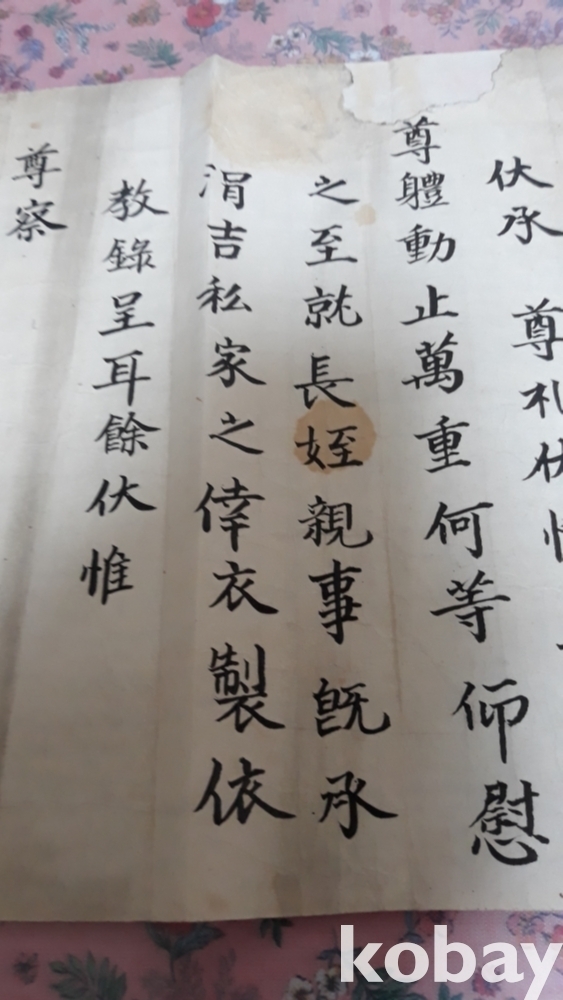 伏承
尊札伏惟
尊體動止萬重何等仰慰
之至就長姪親事旣承
涓吉私家之倖衣製依
敎錄呈耳餘伏惟
尊察
kobay